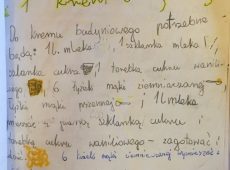 1 krem
Do kremu budyniowego potrzebne
będą: 1L mleka 1 szklanka mleka
szklanka cukru 1 torebka cukru wanilio-
wego 6 łyżek mąki ziemniaczanej
łyżki mąki pszennej i 1L mleka
mieszać z szklanką cukru i
torebką cukru waniliowego - zagotować
6 łyżek mąki ziemniaczanej wymieszać z